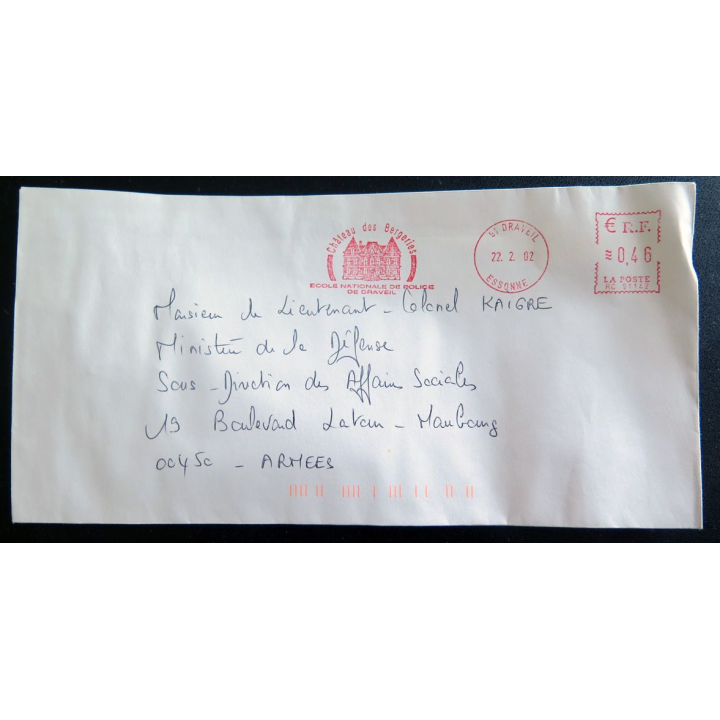 Château des Bergeries
ECOLE NATIONALE DE POLICE
DE DRAVEIL
91 DRAVEIL
22. 2. 02
ESSONNE
€ R.F.
≈ 0,46
LA POSTE
Monsieur le Lieutenant - Colonel KAIGRE
Ministère de la Défense
Sous - Direction des Affaires Sociales
19 Boulevard Latour - Maubourg
00450 - ARMEES